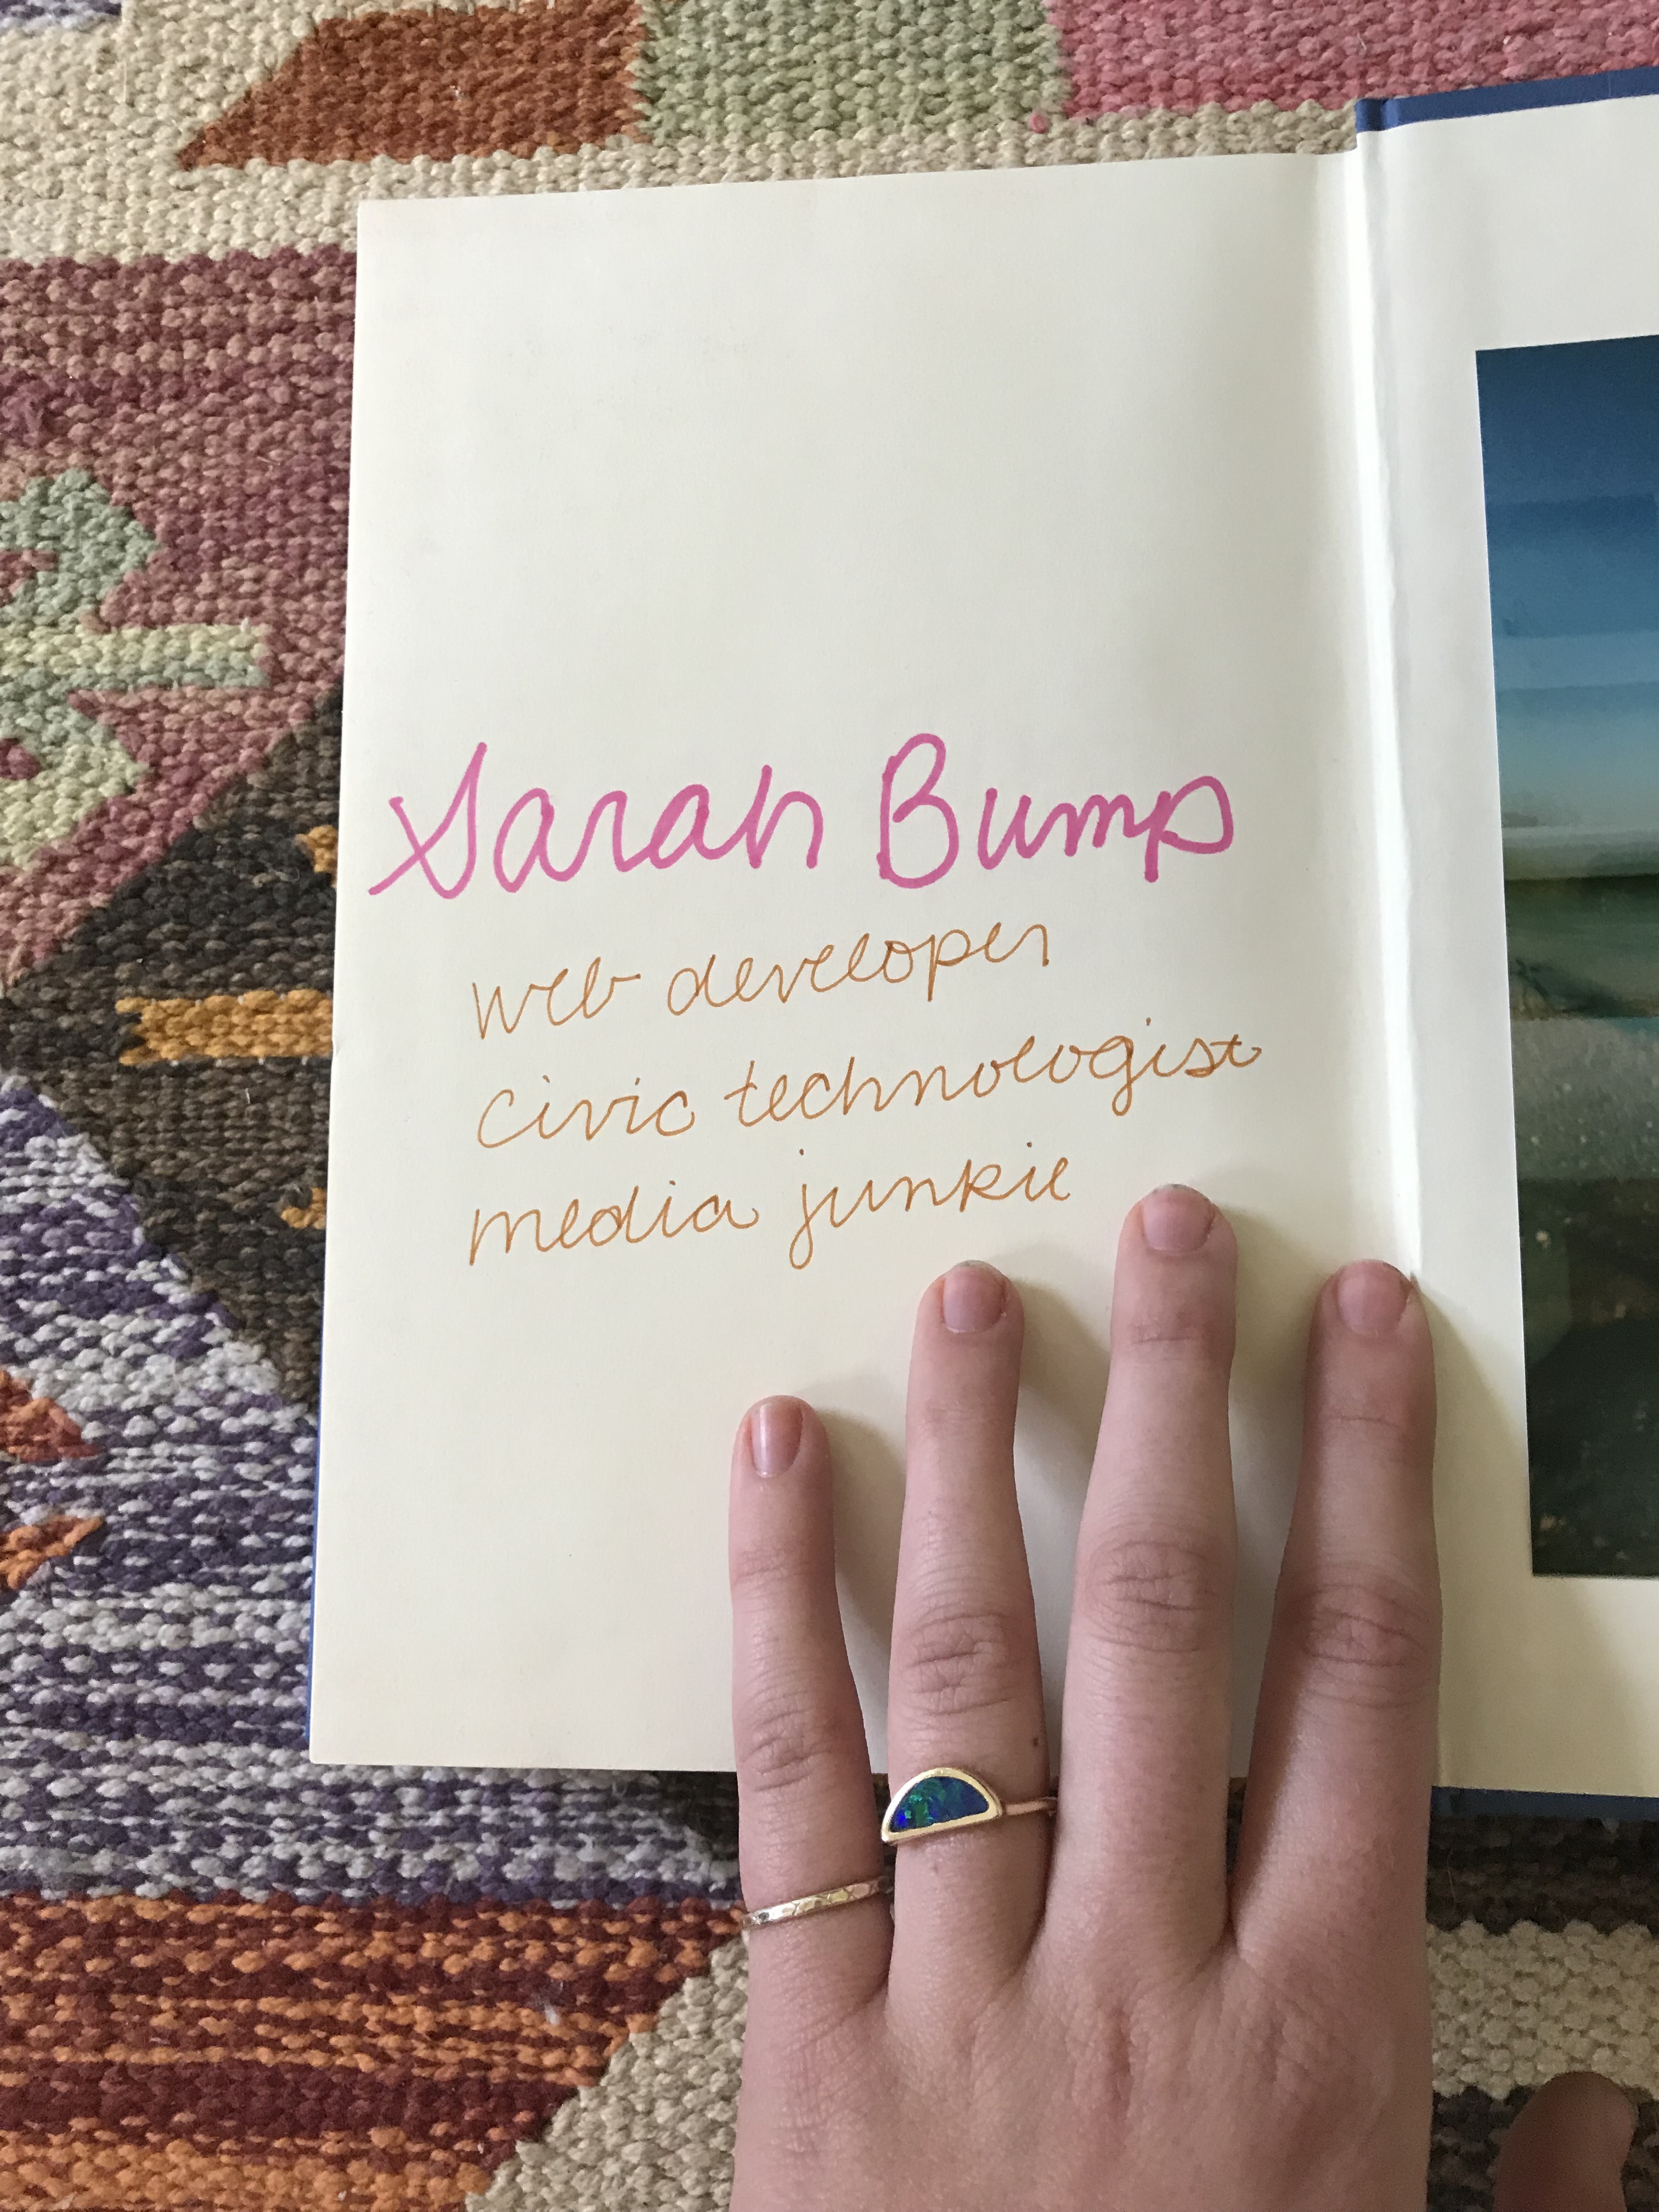 Sarah Bump
web developer
civic technologist
media junkie